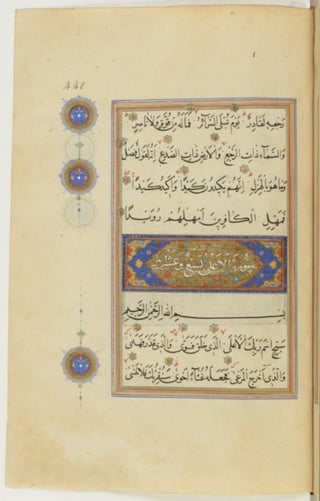 ٤٤٨
رجعه لقادر يوم تبلى السرائر فما له من قوة ولا ناصر
والسماء ذات الرجع والأرض ذات الصدع إنه لقول فصل
وما هو بالهزل إنهم يكيدون كيدا وأكيد كيدا
فمهل الكافرين أمهلهم رويدا
سورة الأعلى تسع وعشر
بسم الله الرحمن الرحيم
سبح اسم ربك الأعلى الذي خلق فسوى والذي قدر فهدى
والذي أخرج المرعى فجعله غثاء أحوى سنقرئك فلا تنسى